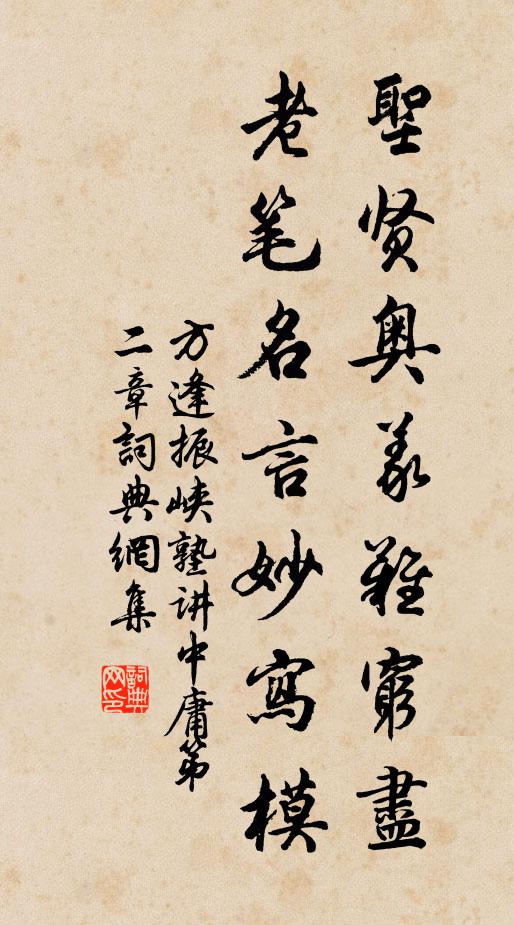 聖贤奥义難窮盡
老笔名言妙寫模
方逢振峡塾讲中庸第
二章詞典網集
詞典网印